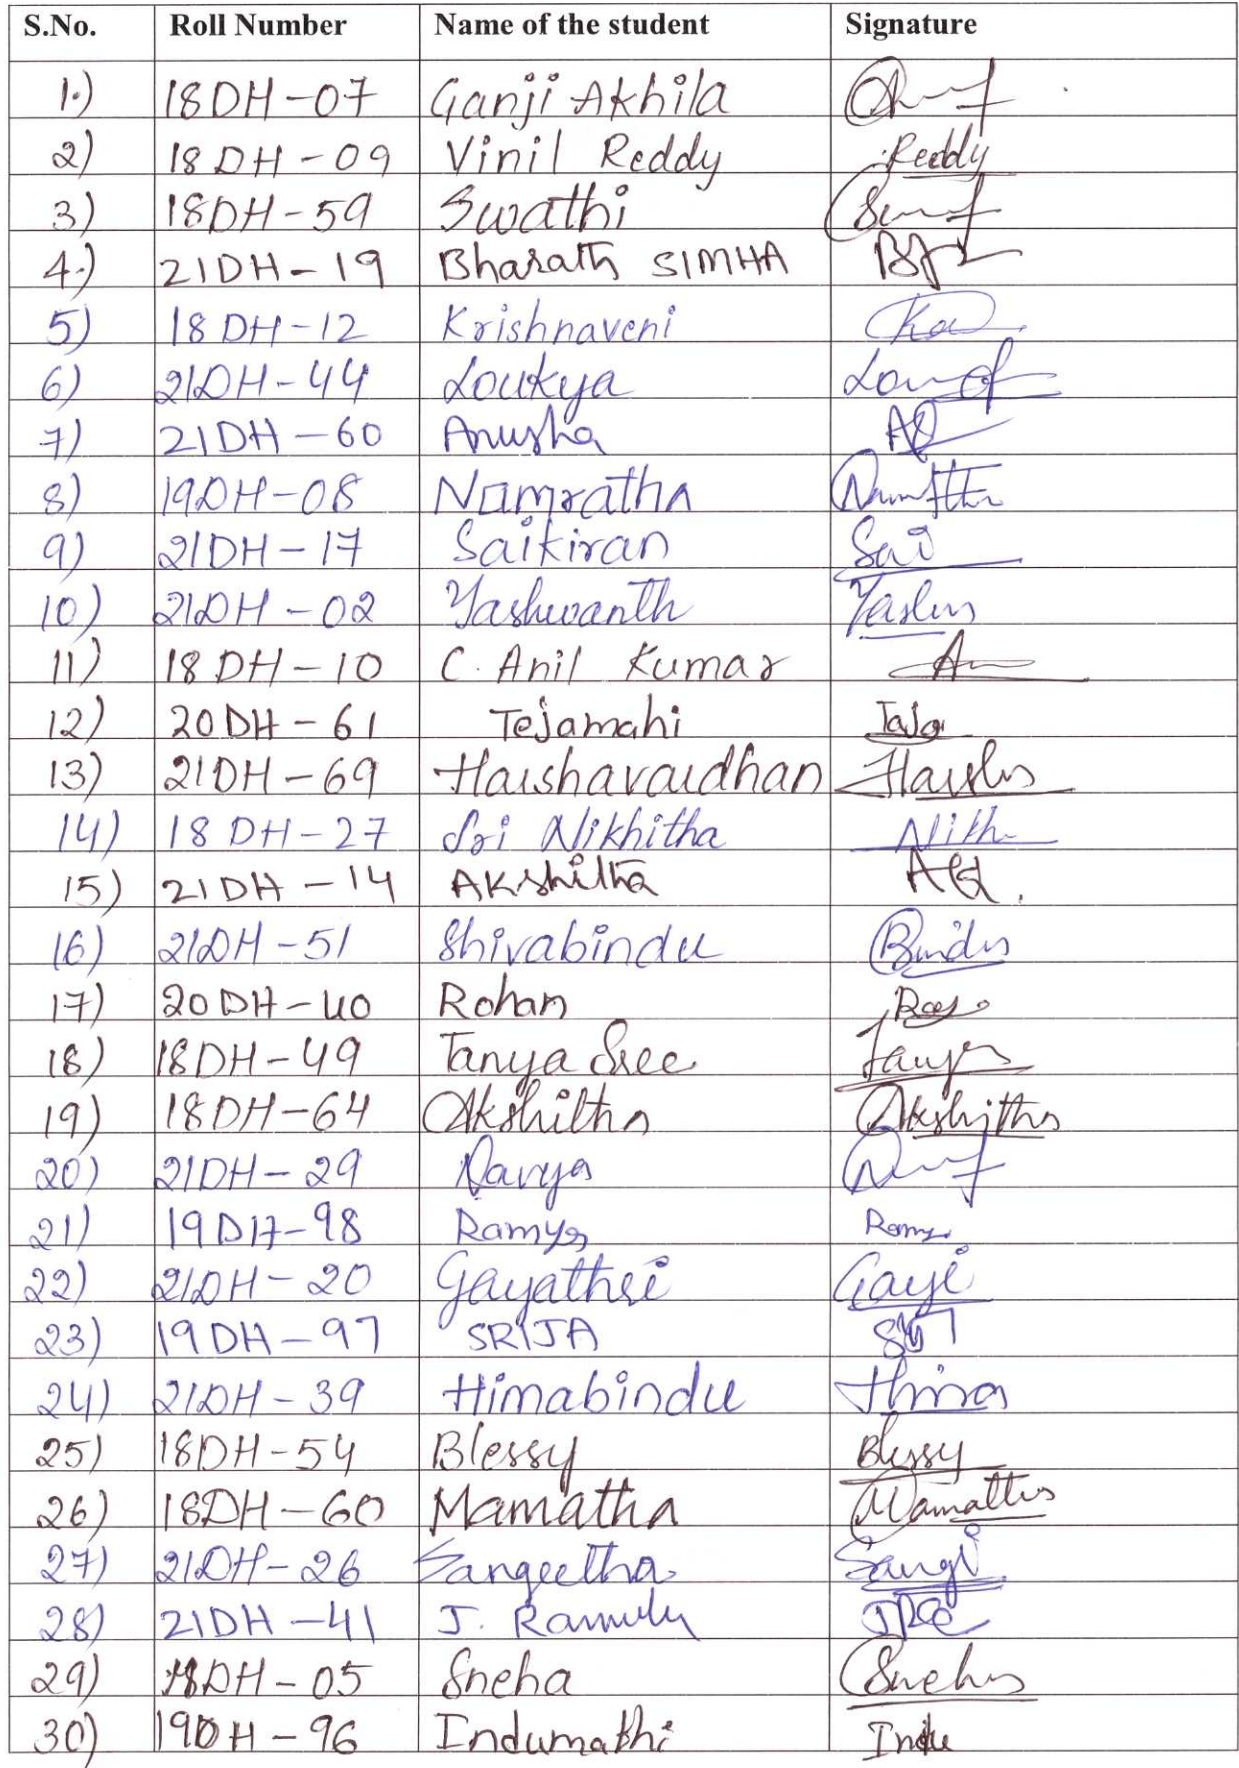 S.No. Roll Number Name of the student Signature
1.) 18DH-07 Ganji Akhila
2) 18DH-09 Vinil Reddy Reddy
3) 18DH-59 Swathi
4.) 21DH-19 Bharath SIMHA
5) 18DH-12 Krishnaveni
6) 21DH-44 Loukya
7) 21DH-60 Anusha
8) 19DH-08 Namratha
9) 21DH-17 Saikiran Sai
10) 21DH-02 Yashwanth
11) 18DH-10 C. Anil Kumar
12) 20DH-61 Tejamahi
13) 21DH-69 Harshavardhan
14) 18DH-27 Sri Nikhitha
15) 21DH-14 Akshitha
16) 21DH-51 Shivabindu
17) 20DH-40 Rohan
18) 18DH-49 Tanya Sree
19) 18DH-64 Akshitha Akshitha
20) 21DH-29 Navya
21) 19DH-98 Ramya
22) 21DH-20 Gayathri
23) 19DH-97 SRIJA
24) 21DH-39 Himabindu Hima
25) 18DH-54 Blessy Blessy
26) 18DH-60 Mamatha Mamatha
27) 21DH-26 Sangeetha Sangi
28) 21DH-41 J. Ramulu
29) 18DH-05 Sneha Sneha
30) 19DH-96 Indumathi Indu